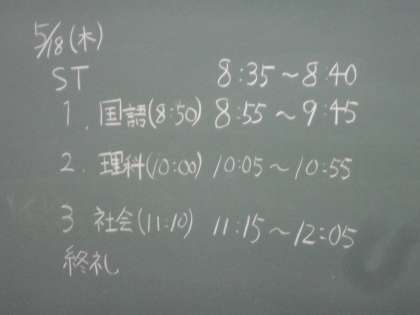 5/18(木)
ST 8:35～8:40
1. 国語(8:50) 8:55～9:45
2. 理科(10:00) 10:05～10:55
3 社会(11:10) 11:15～12:05
終礼